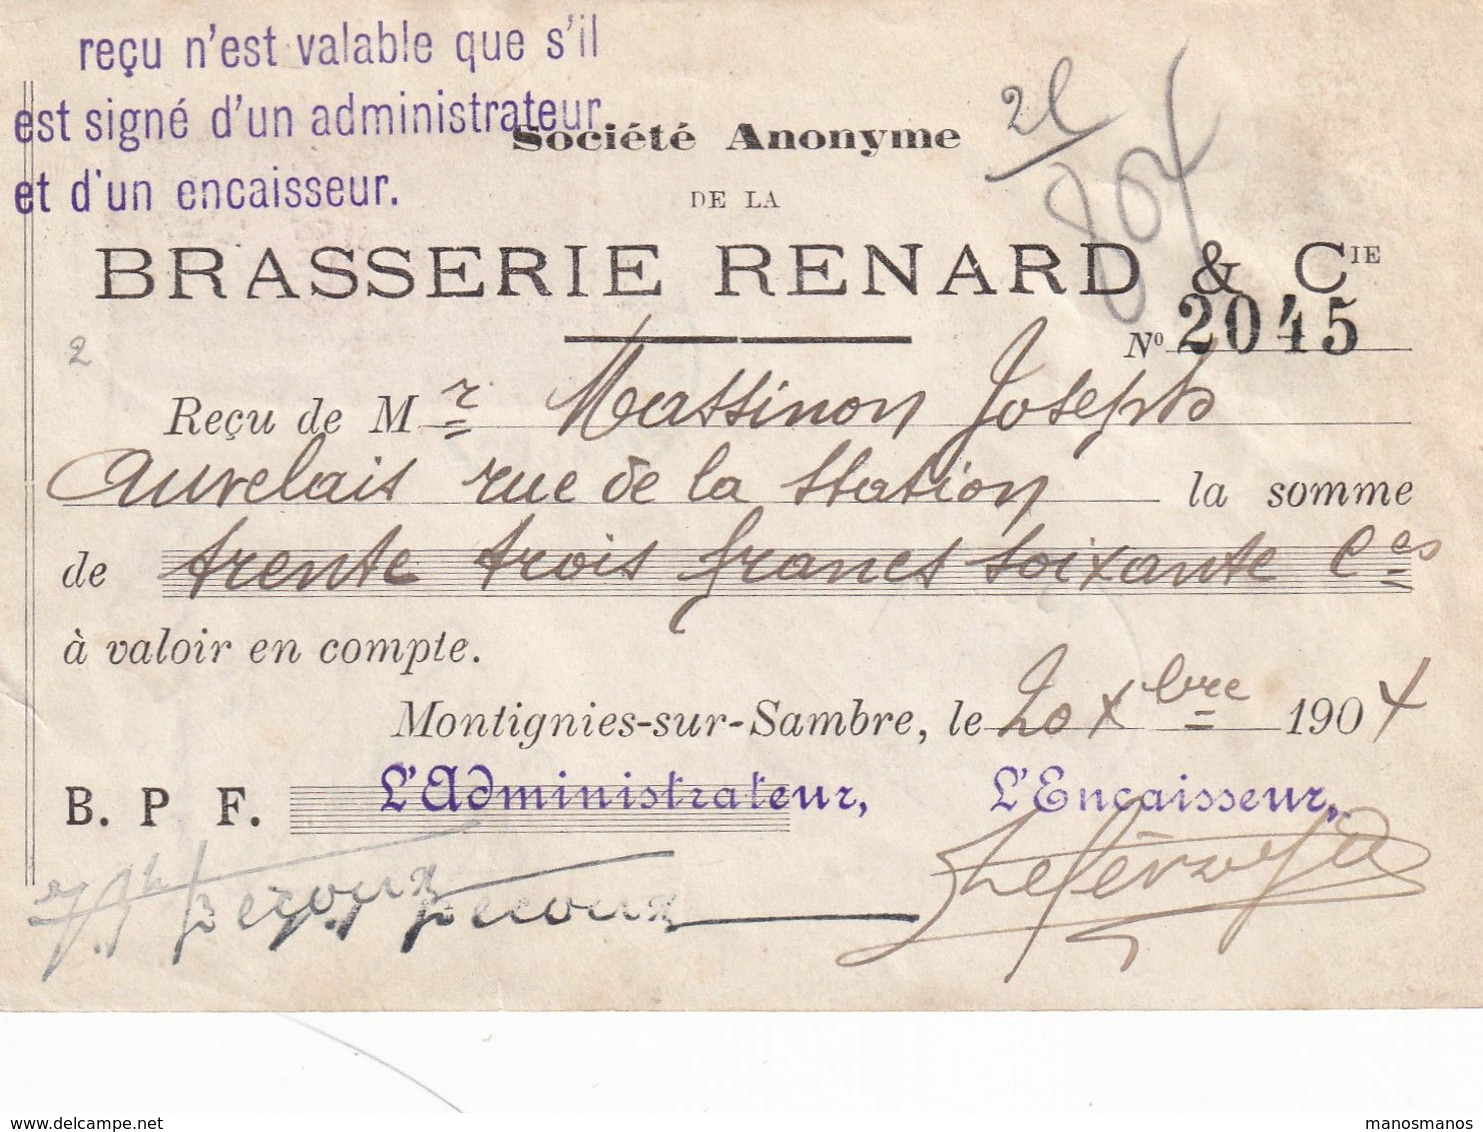 reçu n'est valable que s'il
est signé d'un administrateur
et d'un encaisseur.
Société Anonyme
DE LA
BRASSERIE RENARD & CIE
No 2045
2
Reçu de Mr Massinon Joseph
Auvelais rue de la Station la somme
de trente trois francs soixante Ces
à valoir en compte.
Montignies-sur-Sambre, le 20 Xbre 1904
B. P F. L'Administrateur, L'Encaisseur,
www.delcampe.net manosmanos